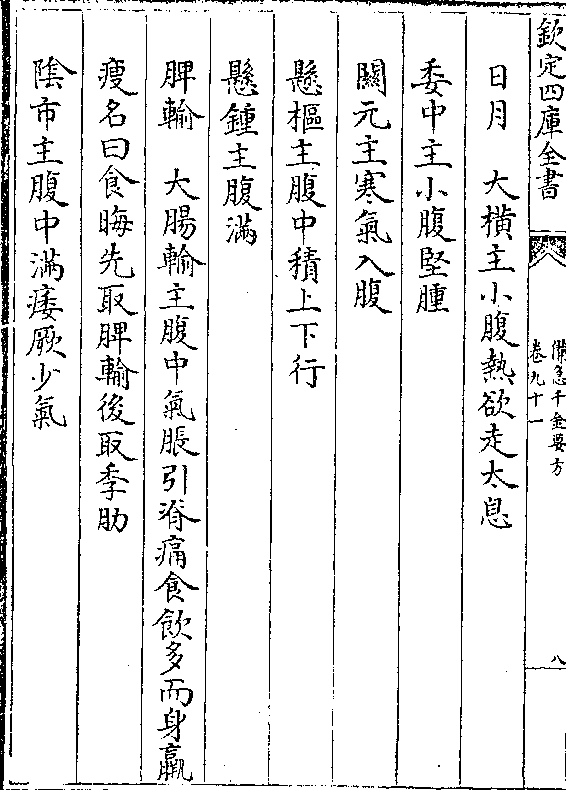 欽定四庫全書
備急千金要方
卷九十一
八
日月　大橫主小腹熱欲走太息
委中主小腹堅腫
關元主寒氣入腹
懸樞主腹中積上下行
懸鍾主腹滿
脾輸　大腸輸主腹中氣脹引脊痛食飲多而身羸
瘦名曰食晦先取脾輸後取季肋
陰市主腹中滿痿厥少氣